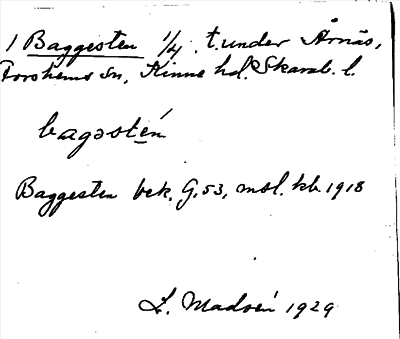 1 Baggesten 1/4, t. under Årnäs,
Forshems sn, Kinne hd. Skarab. l.
bagəsté̱n
Baggesten bek. G. 53, msl. kb. 1918
L. Madsén 1929